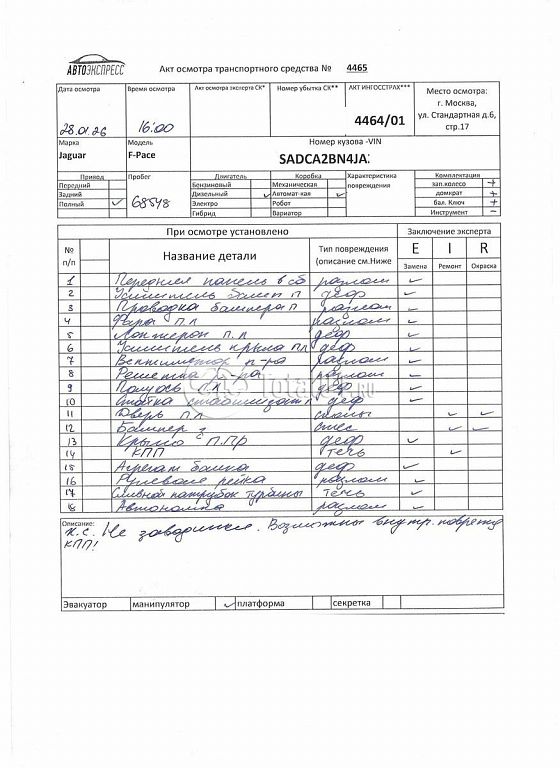 АВТОЭКСПРЕСС
Акт осмотра транспортного средства № 4465
Дата осмотра
28.01.26
Время осмотра
16:00
Акт осмотра эксперта СК*
Номер убытка СК**
АКТ ИНГОССТРАХ***
4464/01
Место осмотра:
г. Москва,
ул. Стандартная д.6,
стр.17
Марка
Jaguar
Модель
F-Pace
Номер кузова -VIN
SADCA2BN4JA
Привод
Передний
Задний
Полный ✓
Пробег
68548
Двигатель
Бензиновый
Дизельный ✓
Электро
Гибрид
Коробка
Механическая
Автомат-кая ✓
Робот
Вариатор
Характеристика
повреждения
Комплектация
зап.колесо +
домкрат +
бал. Ключ +
Инструмент –
При осмотре установлено
Заключение эксперта
№
п/п
Название детали
Тип повреждения
(описание см.Ниже
E I R
Замена Ремонт Окраска
1 Передняя панель в сб разлом ✓
2 Усилитель бамп п деф ✓
3 Проводка бампера п разлом ✓
4 Фара п.л разлом ✓
5 Лонжерон п.л деф ✓
6 Усилитель крыла пл деф ✓
7 Вентилятор р-ра разлом ✓
8 Решетка разлом ✓
9 п.л деф ✓
10 Стойка стабилизат л деф ✓
11 Дверь п.л сколы ✓ ✓
12 Бампер з ✓ ✓
13 Крыло п.пр деф ✓
14 КПП течь ✓
15 Агрегат бачка деф ✓
16 Рулевая рейка разлом ✓
17 патрубок турбины течь ✓
18 Автономка разлом ✓
Total .ru
Описание:
Н.С. Не заводится. Возможны внутр. поврежд
КПП!
Эвакуатор манипулятор ✓ платформа секретка